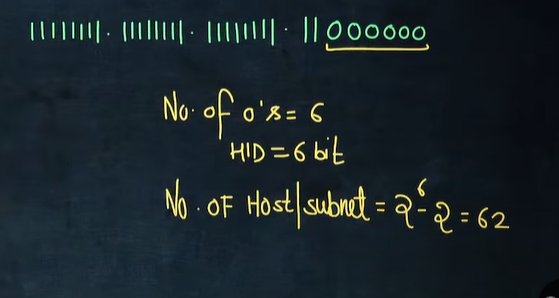 11111111. 11111111. 11111111. 11000000
No. of 0's = 6
HID = 6 bit
No. OF Host/subnet = 2^6 - 2 = 62